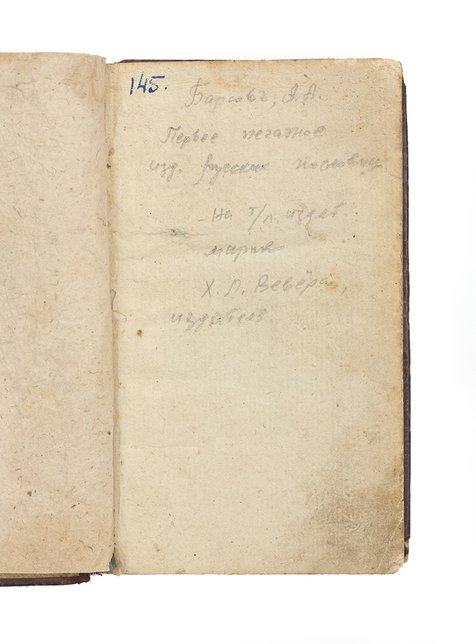 145.
Барсовъ, А.А.
Первое печатное
изд. русских пословиц
На т/л. издат.
марка
Х.Л. Вевера,
издателя